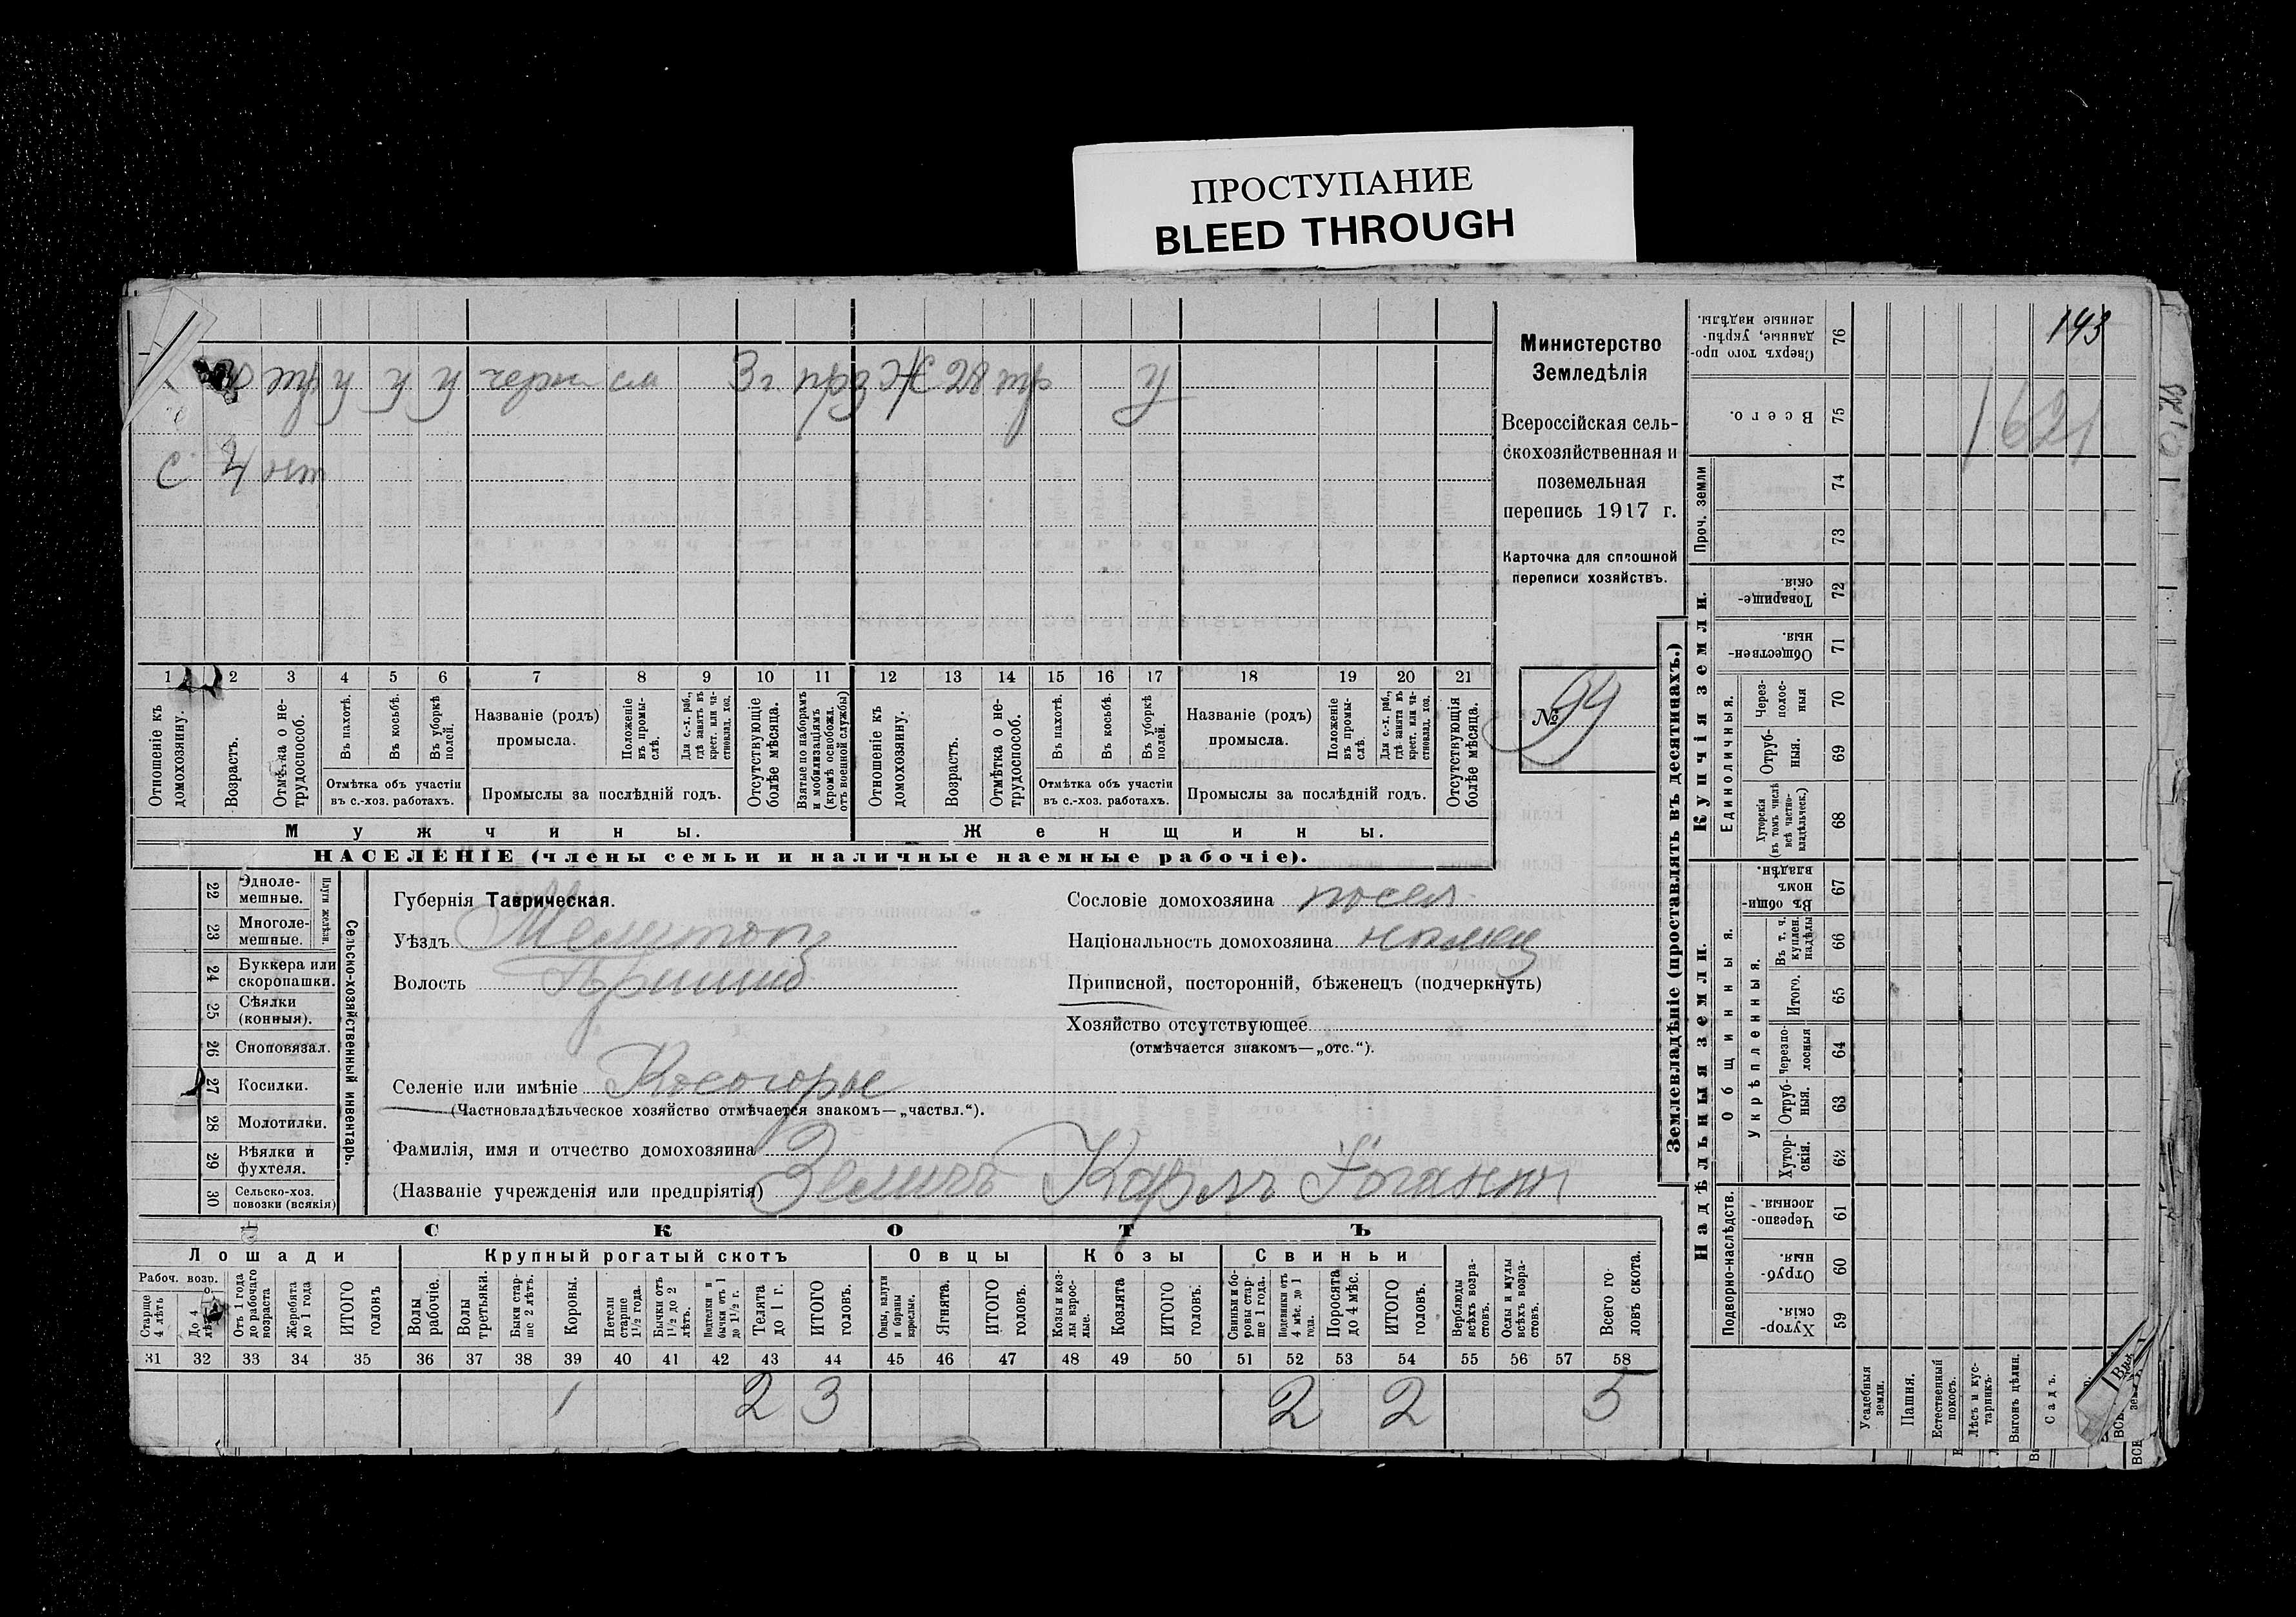 ПРОСТУПАНИЕ
BLEED THROUGH
143
Министерство
Земледѣлія
Всероссійская сель-
скохозяйственная и
поземельная
перепись 1917 г.
Карточка для сплошной
переписи хозяйствъ.
№ 94
3 г.
Ж 28
С. 4
1 2 3 4 5 6 7 8 9 10 11 12 13 14 15 16 17 18 19 20 21
Отношеніе къ домохозяину.
Возрастъ.
Отмѣтка о не-трудоспособ.
Въ пахотѣ.
Въ косьбѣ.
Въ уборкѣ полей.
Отмѣтка объ участіи въ с.-хоз. работахъ.
Названіе (родъ) промысла.
Положеніе въ промы-слѣ.
Для с.-х. раб., гдѣ занятъ въ крест. или ча-стновлад. хоз.
Промыслы за послѣдній годъ.
Отсутствующіе болѣе мѣсяца.
Взятые по наборамъ и мобилизаціямъ (кромѣ освобожд. отъ военной службы)
Отношеніе къ домохозяину.
Возрастъ.
Отмѣтка о не-трудоспособ.
Въ пахотѣ.
Въ косьбѣ.
Въ уборкѣ полей.
Отмѣтка объ участіи въ с.-хоз. работахъ.
Названіе (родъ) промысла.
Положеніе въ промы-слѣ.
Для с.-х. раб., гдѣ занята въ крест. или ча-стновлад. хоз.
Промыслы за послѣдній годъ.
Отсутствующія болѣе мѣсяца.
Мужчины.
Женщины.
НАСЕЛЕНІЕ (члены семьи и наличные наемные рабочіе).
22 Однолемешные.
23 Многолемешные.
Плуги желѣзн.
24 Буккера или скоропашки.
25 Сѣялки (конныя).
26 Сноповязал.
27 Косилки.
28 Молотилки.
29 Вѣялки и фухтеля.
30 Сельско-хоз. повозки (всякія)
Сельско-хозяйственный инвентарь.
Губернія Таврическая.
Уѣздъ Мелитоп
Волость Пришиб
Селеніе или имѣніе Косогорье
(Частновладѣльческое хозяйство отмѣчается знакомъ—„частвл.“).
Фамилія, имя и отчество домохозяина
(Названіе учрежденія или предпріятія) Земичъ Карлъ Іоганн
Сословіе домохозяина посел.
Національность домохозяина немец
Приписной, посторонній, бѣженецъ (подчеркнуть)
Хозяйство отсутствующее
(отмѣчается знакомъ—„отс.“).
СКОТЪ
Лошади
Крупный рогатый скотъ
Овцы
Козы
Свиньи
Рабоч. возр.
Старше 4 лѣтъ
До 4 лѣтъ
Отъ 1 года до рабочаго возраста
Жеребята до 1 года
ИТОГО головъ
Волы рабочіе.
Волы третьяки.
Быки стар-ше 2 лѣтъ.
Коровы.
Нетели старше 1½ года.
Бычки отъ 1½ до 2 лѣтъ.
Подтелки и бычки отъ 1 до 1½ г.
Телята до 1 г.
ИТОГО головъ.
Овцы, валухи и бараны взрослые.
Ягнята.
ИТОГО головъ.
Козы и коз-лы взрос-лые.
Козлята
ИТОГО головъ.
Свиньи и бо-ровы стар-ше 1 года.
Подсвинки отъ 4 мѣс. до 1 года.
Поросята до 4 мѣс.
ИТОГО головъ.
Верблюды всѣхъ возра-стовъ.
Ослы и мулы всѣхъ возра-стовъ.
Всего го-ловъ скота.
31 32 33 34 35 36 37 38 39 40 41 42 43 44 45 46 47 48 49 50 51 52 53 54 55 56 57 58
1 2 3 2 2 5
Землевладѣніе (проставлять въ десятинахъ.)
Купчія земли.
Надѣльныя земли.
Проч. земли
Единоличныя.
Общинныя.
Укрѣпленныя.
Подворно-наслѣдств.
76 Сверхъ того про-данные, укрѣп-ленные надѣлы.
75 Всего.
74
73
72 Товарище-скія.
71 Обществен-ныя.
70 Через-полос-ныя
69 Отруб-ныя.
68 Хуторскія (въ томъ числѣ всѣ частно-владѣльческ.)
67 Въ общи-номъ владѣн.
66 Въ т. ч. куплен. надѣлы
65 Итого.
64 Черезпо-лосныя
63 Отруб-ныя.
62 Хутор-скія.
61 Черезпо-лосныя.
60 Отруб-ныя.
59 Хутор-скія
Усадебныя земли.
Пашня.
Естественный покосъ.
Лѣсъ и кус-тарникъ.
Выгонъ цѣлин.
Садъ.